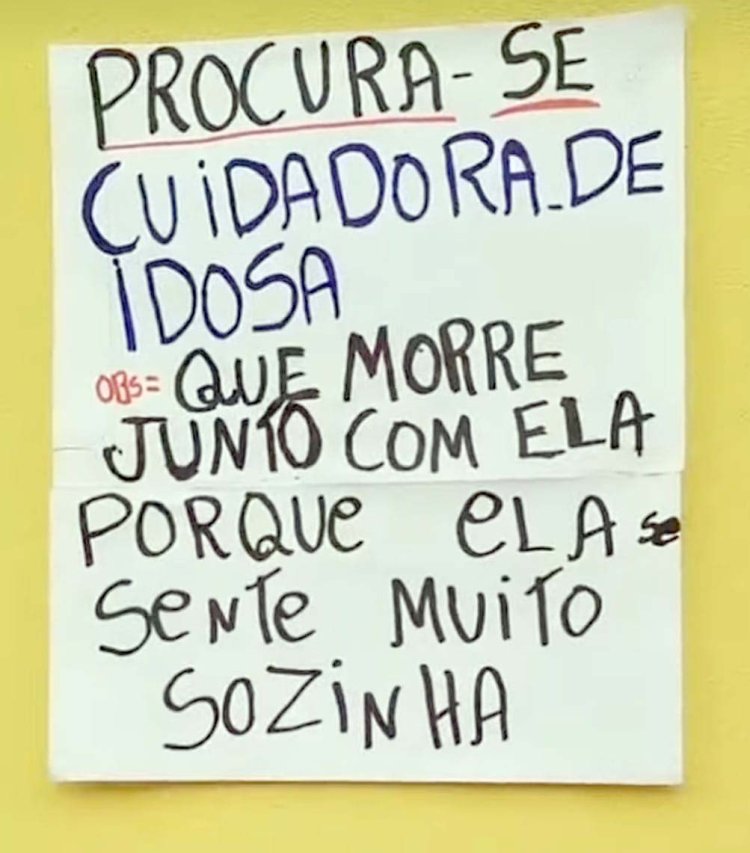 PROCURA-SE
CUiDADORA-DE
iDOSA
OBS= QUE MORRE
JUNTO COM ELA
PORQUe eLA se
SeNTe MUiTO
SOZiNHA